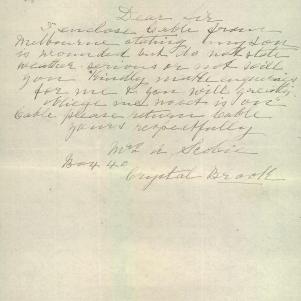 Dear Sir
I enclose Cable from
Melbourne stating my son
is wounded but do not state
weather serious or not will
you kindly make enquiries
for me & you will greatly
oblige me next is our
Cable please return Cable
yours respectfully
Mrs A Scobie
Box 40
Crystal Brook